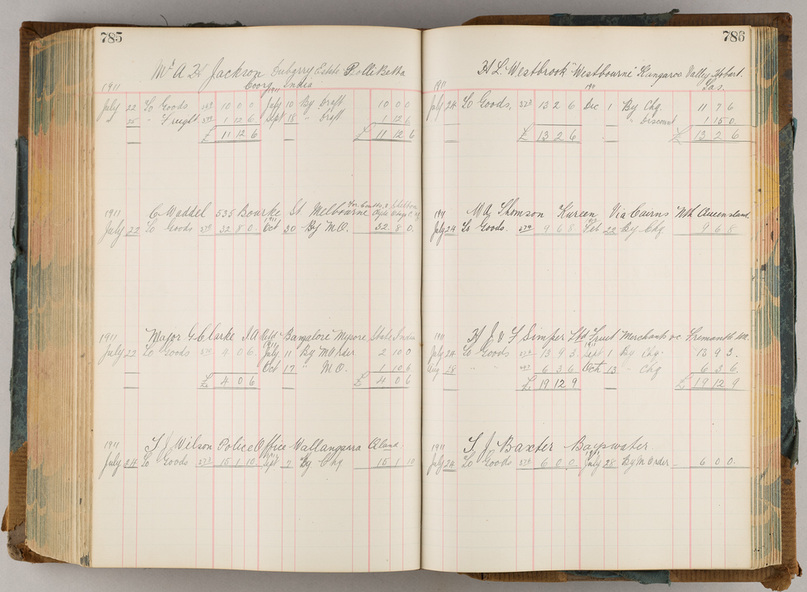 785
Mr A H Jackson Cubgrry Estate Polli Betta
Coorg India
1911
July 22 To Goods 10 0 0 July 10 By Draft 10 0 0
25 " Freight 1 12 6 Sept 15 " Draft 1 12 6
£ 11 12 6 £ 11 12 6
1911 C Waddel 535 Bourke St Melbourne
July 22 To Goods 32 8 0 Oct 30 By M.O. 32 8 0
1911 Major G Clarke Bangalore Mysore State India
July 22 To Goods 4 0 6 July 11 By M Order 2 10 0
Oct 17 " M.O. 1 10 6
£ 4 0 6 £ 4 0 6
1911 T J Wilson Police Office Wallangarra Qland
July 24 To Goods 15 1 10 Sept 7 By Chq 15 1 10
786
H L Westbrook "Westbourne" Kangaroo Valley Hobart
1911 Tas.
July 24 To Goods. 13 2 6 Dec 1 By Chq. 11 7 6
" Discount 1 15 0
£ 13 2 6 £ 13 2 6
1911 Thomson Kureen Via Cairns Nth Queensland
July 24 To Goods. 9 6 8 Feb 22 By Chq 9 6 8
1911 H J & F Simper Ltd Fruit Merchants &c Fremantle WA
July 24 To Goods 13 9 3 Sept 1 By Chq 13 9 3
Aug 28 " " 6 3 6 Oct 13 " Chq 6 3 6
£ 19 12 9 £ 19 12 9
1911 T J Baxter Bayswater
July 24 To Goods 6 0 0 July 28 By M Order 6 0 0